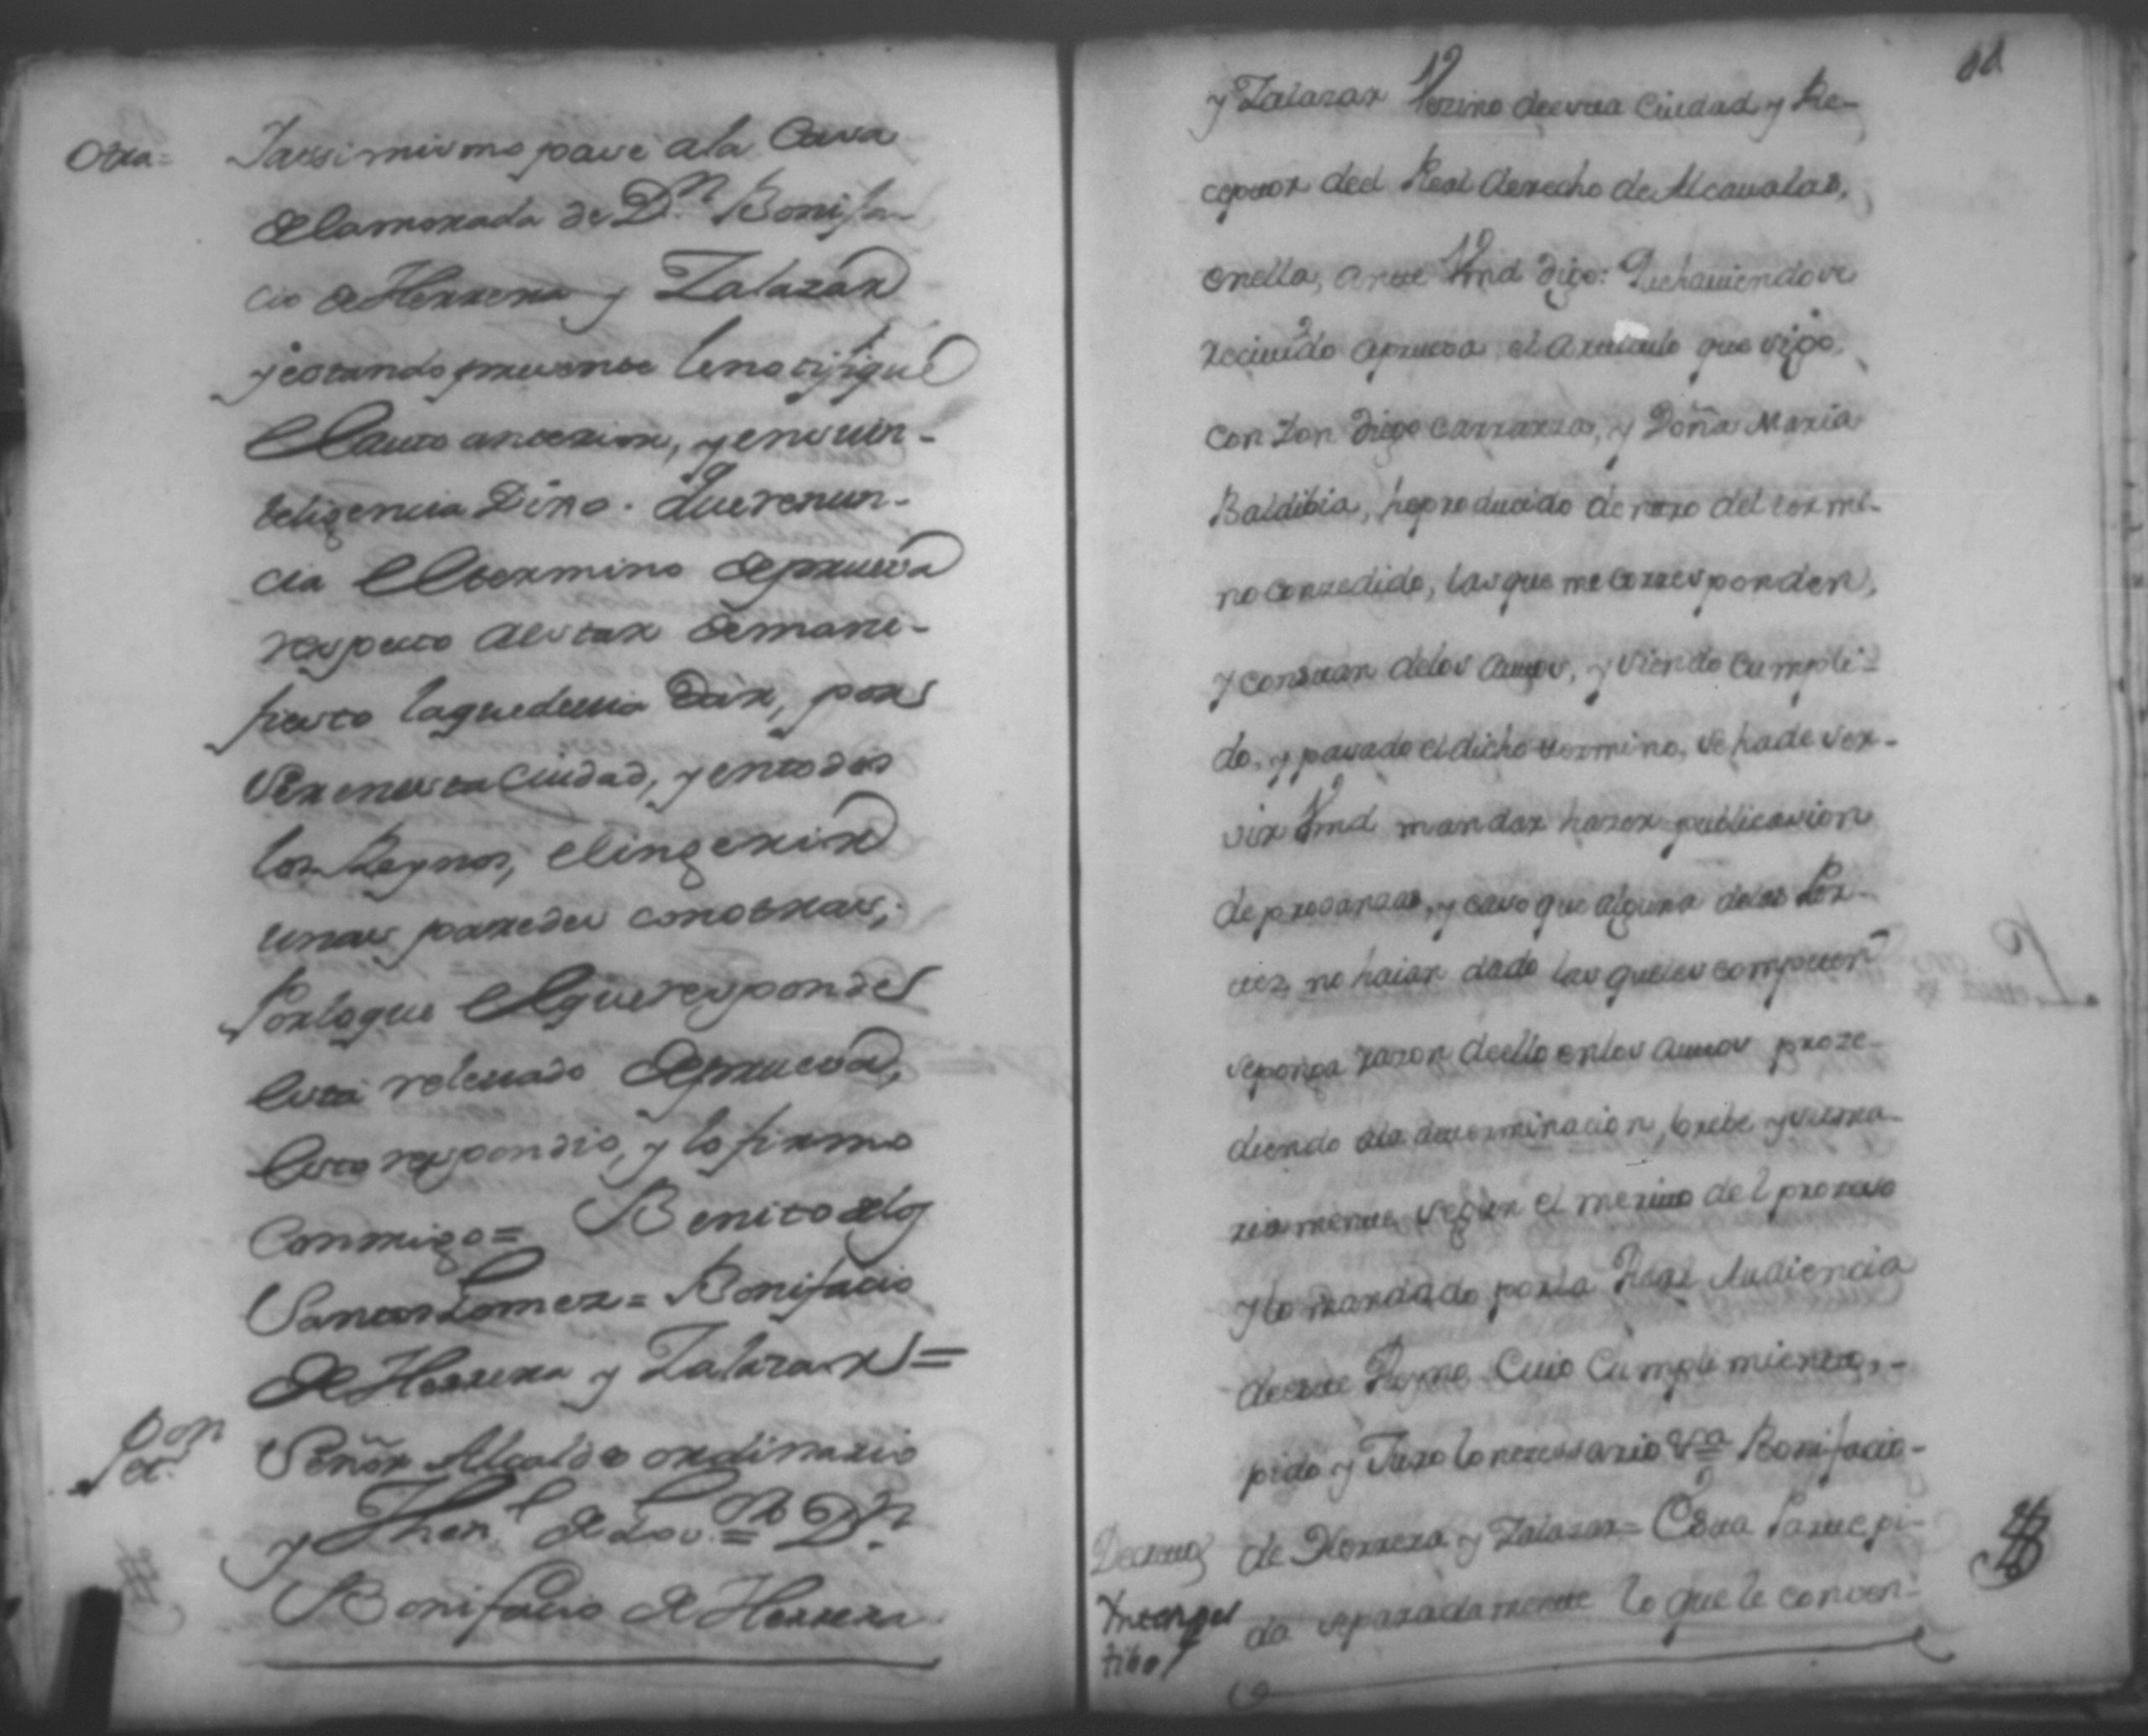 Otra= Yassimismo pasé ala Casa
de la morada de D.n Bonifa-
cio de Herrera y Zalazar
y estando presente le notifiqué
el auto anterior, y en su in-
teligencia Dixo. Que renun-
cia el termino de prueva
respecto a estar de mani-
fiesto la que devia dar, por
ser en esta Ciudad, y en todos
los Reynos, el ingerir
unas paredes con otras,
Por lo que el que responde
está relevado de prueva,
Esto respondio, y lo firmo
Conmigo= Benito de los
Santos Gomez= Bonifacio
de Herrera y Zalazar=
Señor Alcalde ordinario
y Then.te D.n
Bonifacio de Herrera
11
y Zalazar Vezino de esta Ciudad y Re-
ceptor del Real derecho de Alcavalas,
en ella, ante Vmd digo: Que haviendose
recivido a prueva el Articulo que sigo
con Don Diego Carranza, y Doña Maria
Baldibia, he producido dentro del termi-
no conzedido, las que me corresponden,
y constan de los autos, y siendo cumpli-
do, y pasado el dicho termino, se ha de ser-
vir Vmd mandar hazer publicasion
de provanzas, y caso que alguna de las Par-
tes no haian dado las que les competen
se ponga razon de ello en los autos proze-
diendo a la determinacion, brebe y suma-
riamente segun el merito del prozeso
y lo mandado por la Real Audiencia
de este Reyno Cuio Cumplimiento,
pido y Juro lo nezessario Bonifacio
Decreto de Herrera y Zalazar= Esta Parte pi-
da separadamente lo que le conven-